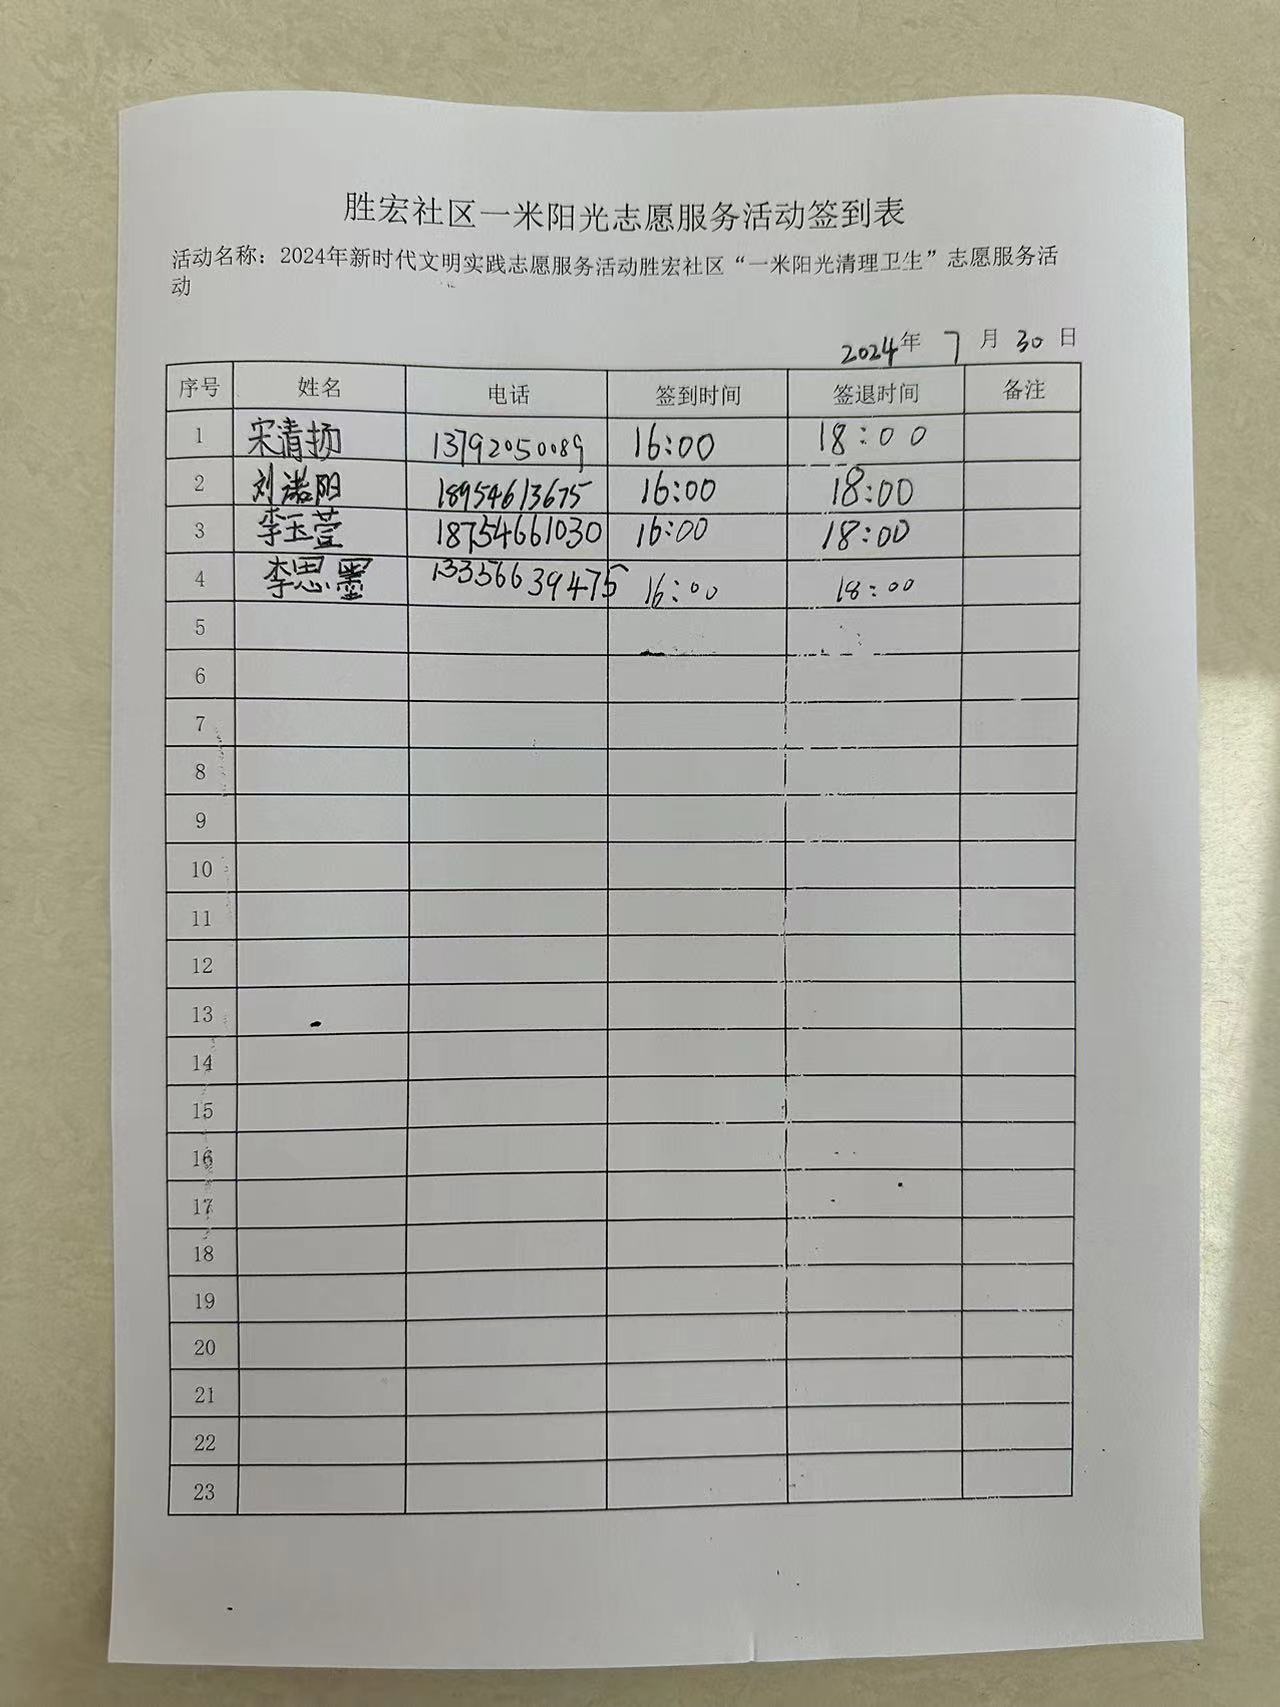 胜宏社区一米阳光志愿服务活动签到表
活动名称：2024年新时代文明实践志愿服务活动胜宏社区“一米阳光清理卫生”志愿服务活
动
2024年 7 月 30 日
序号 姓名 电话 签到时间 签退时间 备注
1 宋清扬 13792050089 16:00 18:00
2 刘诺阳 18954613675 16:00 18:00
3 李玉萱 18754661030 16:00 18:00
4 李思墨 13356639475 16:00 18:00
5
6
7
8
9
10
11
12
13
14
15
16
17
18
19
20
21
22
23